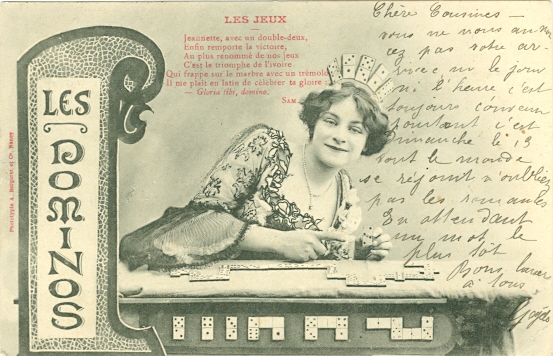 LES JEUX
Jeannette, avec un double-deux,
Enfin remporte la victoire,
Au plus renommé de nos jeux
C'est le triomphe de l'ivoire
Qui frappe sur le marbre avec un trémolo
Il me plaît en latin de célébrer ta gloire :
— Gloria tibi, domino.
SAM.
LES
DOMINOS
Phototypie A. Bergeret et Cie, Nancy
Chère Cousines —
vous ne nous annon
cez pas votre ar-
rivée ni le jour
ni l'heure c'est
toujours convenu
pourtant c'est
dimanche le 13
tout le monde
se réjouit n'oubliez
pas les romantes
En attendant
un mot le
plus tôt
Bons baisers
à tous